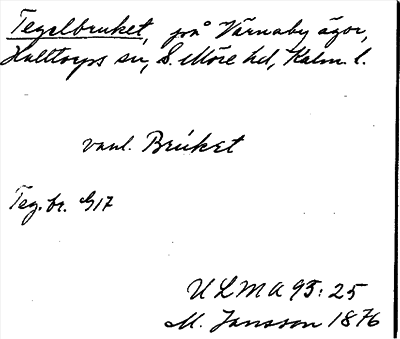 Tegelbruket, på Värnaby ägor,
Halltorps sn, S. Möre hd, Kalm. l.
vanl. Brúket
Teg. br. G17
ULMA 93:25
M. Jansson 1876